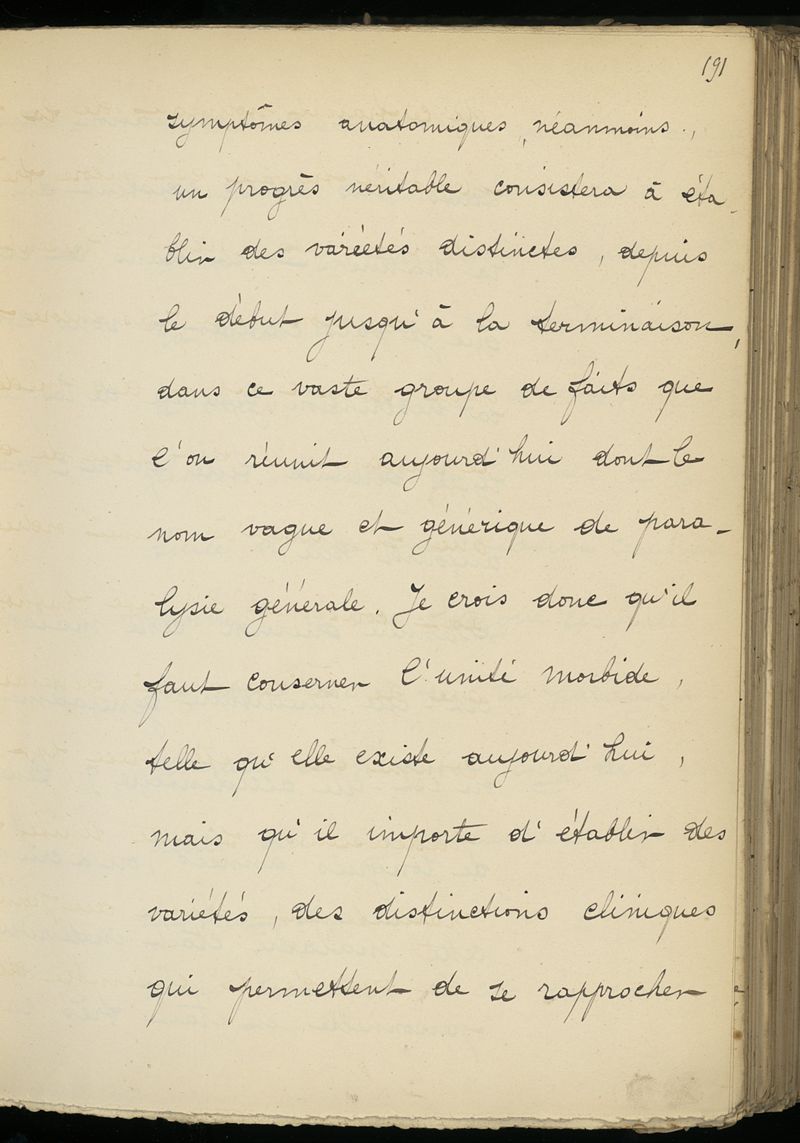 191
symptômes anatomiques, néanmoins,
un progrès véritable consistera à éta-
blir des variéetés distinctes, depuis
le début jusqu'à la terminaison,
dans ce vaste groupe de faits que
l'on réunit aujourd'hui dont le
nom vague et générique de para-
lysie générale. Je crois donc qu'il
faut conserver l'unité morbide,
telle qu'elle existe aujourd'hui,
mais qu'il importe d'établir des
variétés, des distinctions cliniques
qui permettent de se rapprocher